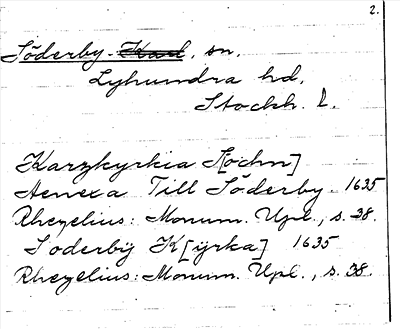 2.
Söderby-Karl, sn.
Lyhundra hd.
Stockh. L.
Karzkyrkia S[ochn]
Aenexa Till Söderby 1635
Rhezelius: Monum. Upl., s. 38.
Söderbÿ K[yrka] 1635
Rhezelius: Monum. Upl., s. 38.